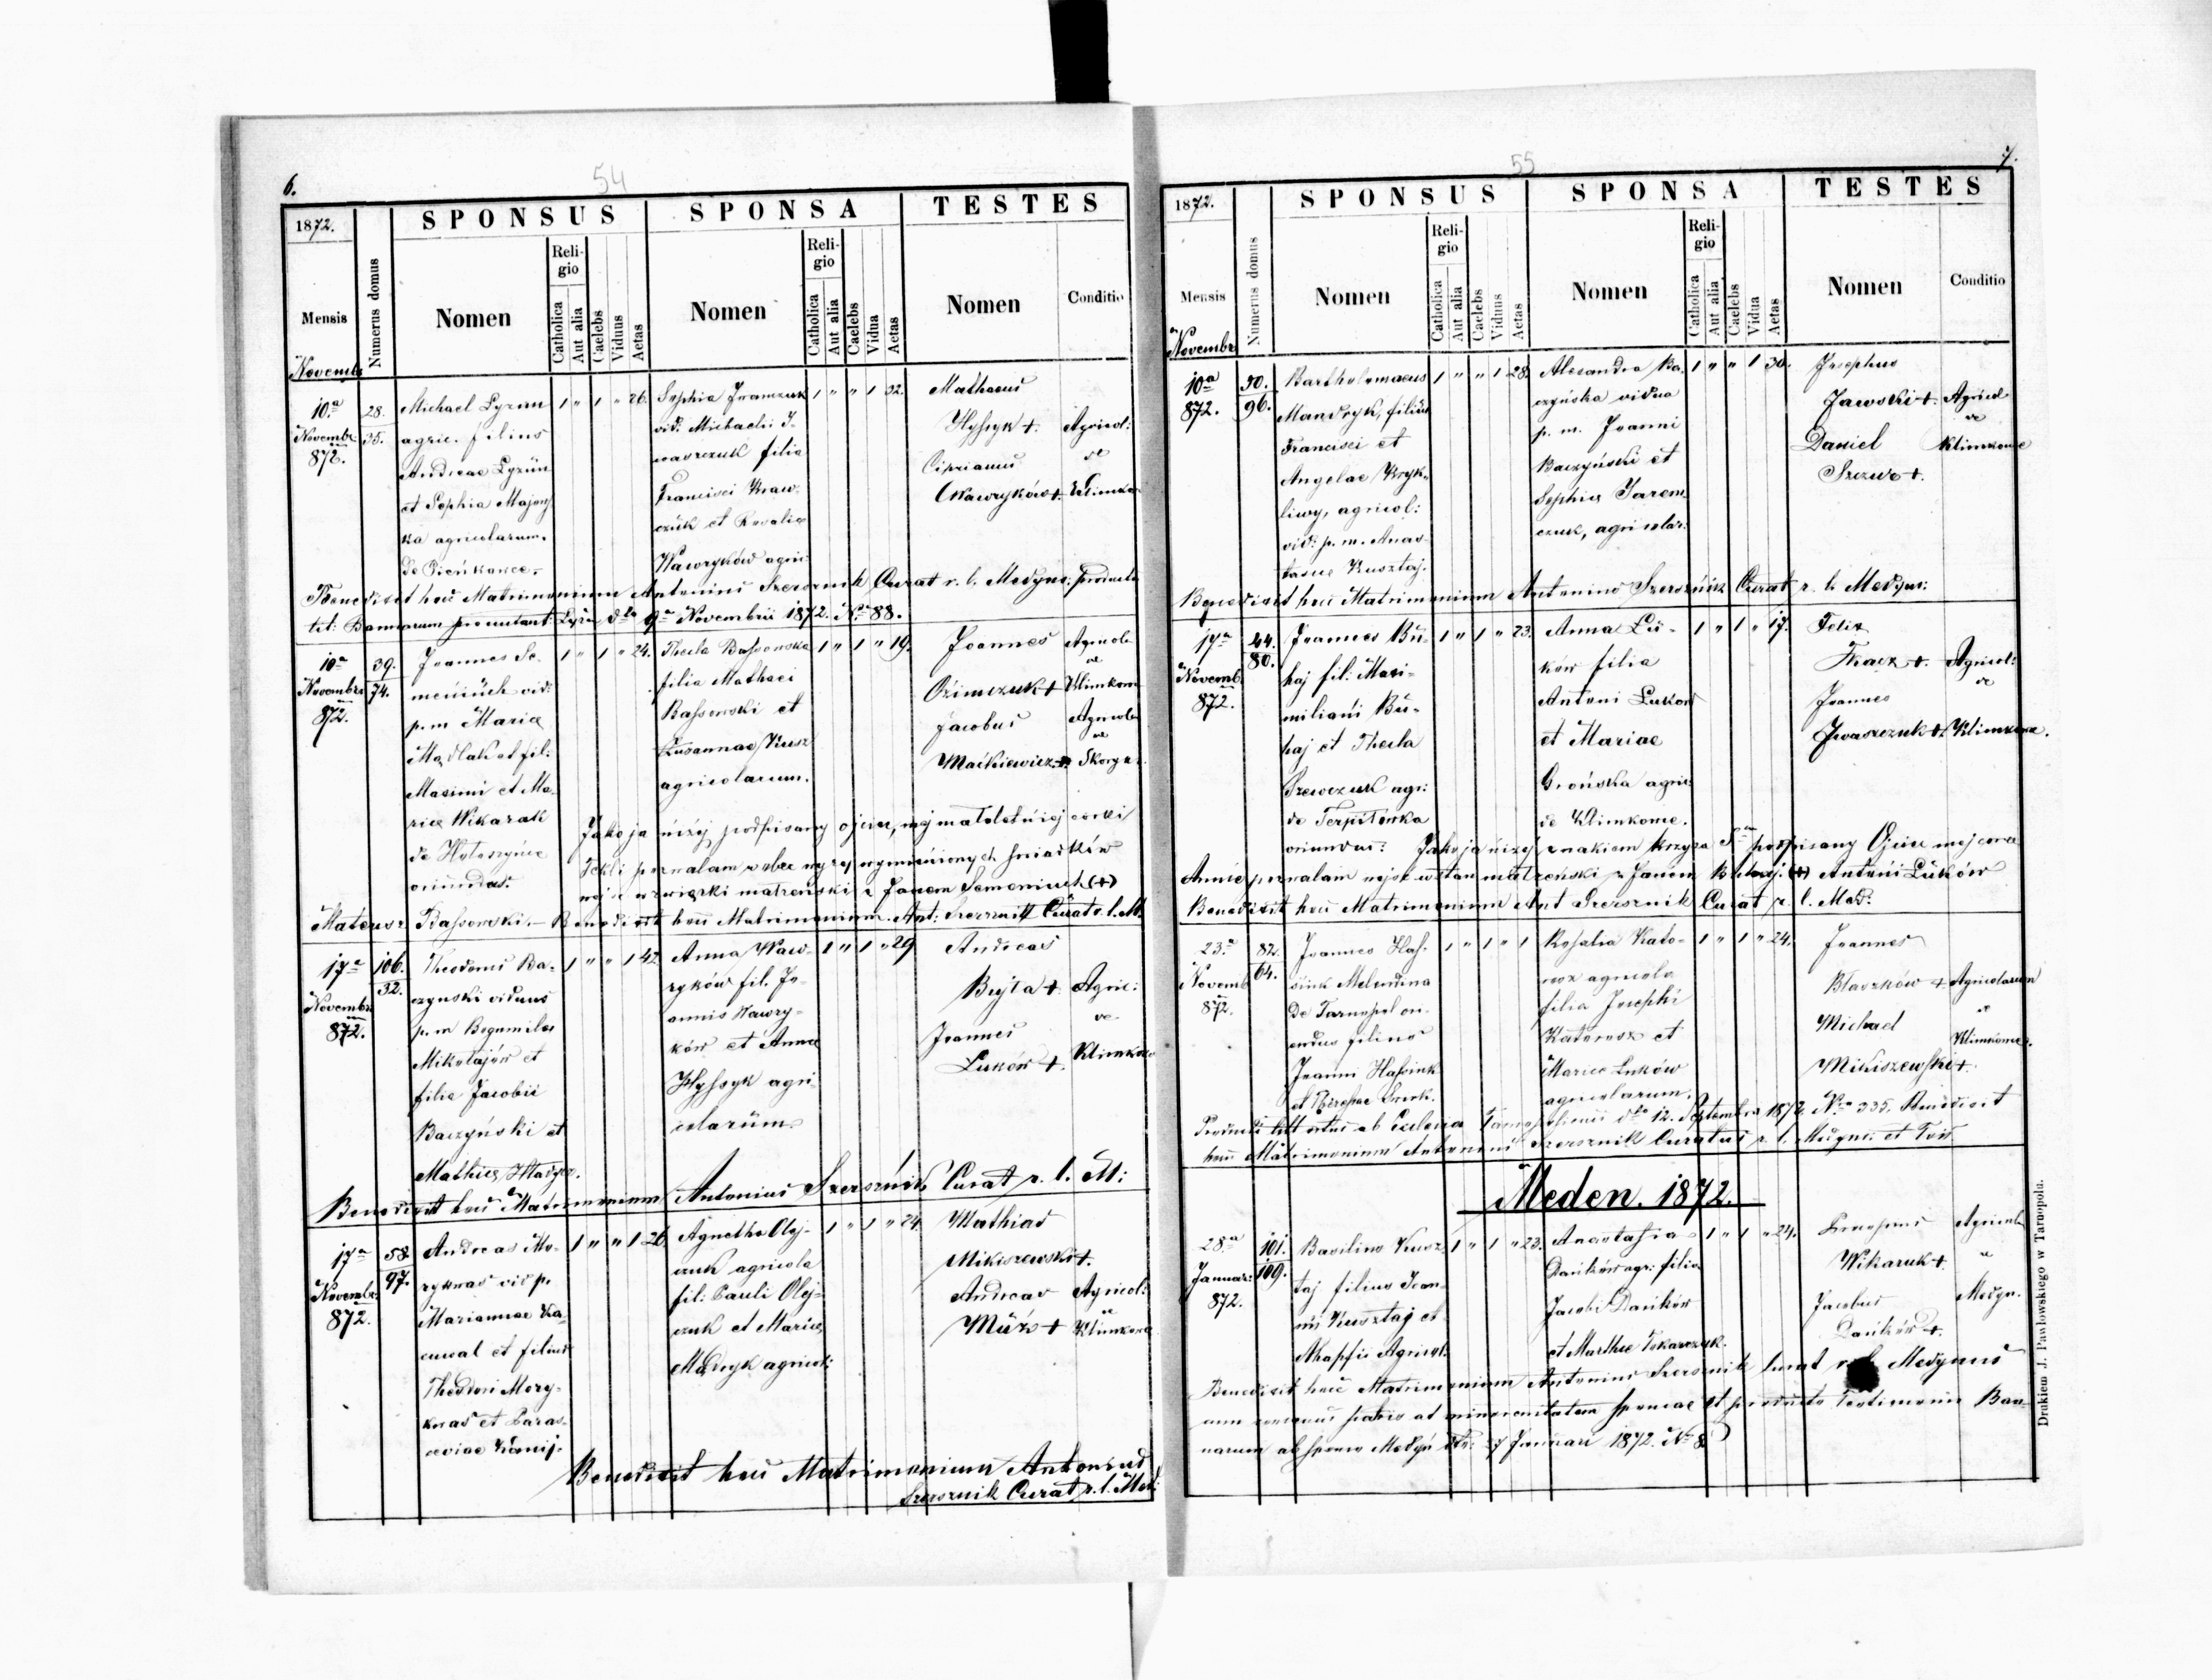 6.
54
1872.
Numerus domus
SPONSUS
SPONSA
TESTES
Mensis
Nomen
Religio
Catholica
Aut alia
Caelebs
Viduus
Aetas
Nomen
Religio
Catholica
Aut alia
Caelebs
Vidua
Aetas
Nomen
Conditio
Novemb
10.a
Novemb
872.
28.
35.
Michael Lyzun
agric. filius
Andreae Lyzun
et Sophia
agricolarum.
de Pieńkowce.
1 " 1 " 26.
Sophia
vid. Michaeli
filia
Francisci Kraw-
czuk et Rosalia
Wawryków agri:
1 " " 1 32.
Mathaeus
Hyszyk +.
Ciprianus
Wawryków +.
Agricol:
de
Klimkow
Benedixit hoc Matrimonium Antonius Szersznik Curat r. l. Medyn: producta
9a Novembris 1872. No 88.
10a
Novembr
872.
39.
74.
Joannes Se-
meniuch vid:
p. m Maria
et fil:
Maximi et Ma-
riae Wikaruk
de Hołoszyńce
oriundus.
1 " 1 " 24.
Thecla Bassowska
filia Mathaei
Bassowski et
Zusannae Kusz
agricolarum.
1 " 1 " 19.
Joannes
Ozimczuk +
Jacobus
Maćkiewicz +.
Agricola
de
Klimkow
Agricola
de
Skoryk
Jako ja niżej podpisany ojciec, mej małoletniej corki
Tekli pozwalam wobec wyżej wymienionych swiadków
wejsc w związki małżenski z Janem Semeniuch (+)
Mateusz Bassowski. - Benedixit hoc Matrimonium Ant: Szersznik Curat r. l. M.
17a
Novembr
872.
106.
32.
Theodorus Ba-
czynski viduus
p. m
Mikołajów et
filia Jacobii
Baczyński et
1 " " 1 42.
Anna Waw-
ryków fil. Jo-
annis Wawry-
ków et Anna
Hyszyk agri
colarum
1 " 1 " 29
Andreas
Bujła +
Joannes
Luków +.
Agric:
de
Klimkow
Benedixit hoc Matrimonium Antonius Szersznik Curat r. l. M:
17a
Novembr.
872.
58.
97.
Andreas Mo-
ryknas vid p.
Mariannae Ka-
et filius
Theodori Mory-
knas et Paras-
ceviae
1 " " 1 26.
Agnetha Olej-
czuk agricola
fil: Pauli Olej-
czuk et Maria
Madryk agricol:
1 " 1 " 24.
Mathias
Mikiszewski +.
Andreas
Agricol:
de
Klimkow
Benedixit hoc Matrimonium Antonius
Szersznik Curat r. l. Med:
55
7.
1872.
Numerus domus
SPONSUS
SPONSA
TESTES
Mensis
Nomen
Religio
Catholica
Aut alia
Caelebs
Viduus
Aetas
Nomen
Religio
Catholica
Aut alia
Caelebs
Vidua
Aetas
Nomen
Conditio
Novembr
10a
872.
50.
96.
Bartholomaeus
Mandryk, filius
Francisci et
Angelae Kryk-
liwy, agricol:
vid: p. m. Anas-
tasiae Kusztaj.
1 " " 1 28.
Alexandra Ba-
czyńska vidua
p. m. Joanni
Baczyński et
Sophia Jarem
czuk, agricolar:
1 " " 1 30.
Josephus
Jawoski +.
Daniel
+.
Agricol
de
Klimkowce
Benedixit hoc Matrimonium Antonius Szersznik Curat r. l. Medyn:
17a
Novemb
872.
44.
80.
Joannes Bu-
haj fil: Maxi-
miliani Bu-
haj et Thecla
Szewczuk agr:
de Terpiłówka
oriundus:
1 " 1 " 23.
Anna Lu-
ków filia
Antoni Luków
et Mariae
Grońska agric
de Klimkowce.
1 " 1 " 17.
Felix
Tkacz +.
Joannes
Iwaszczuk +.
Agricol:
de
Klimkowce.
Jako ja niżej znakiem krzyża Ste podpisany Ojciec mej corce
Annie pozwalam wejsc w stan małzenski z Janem Buhaj. (+) Antoni Luków
Benedixit hoc Matrimonium Ant Szersznik Curat r. l. Med:
23a
Novemb
872.
82.
64.
Joannes
de Tarnopol ori-
undus filius
Joanni
1 " 1 " 1
Rosalia Kato-
agricola
filia Josephi
et
Maria Luków
agricolarum.
1 " 1 " 24.
Joannes
Błaszków +
Michael
Mikiszewski +.
Agricolarum
de
Klimkowce.
ab Ecclesia Tarnopoliensi dto 12. Septembra 1872. No 335. Benedixit
hoc Matrimonium Antonius Szersznik Curatus r. l. Medyn:
Meden. 1872.
28.a
Januar:
872.
101.
109.
Basilius Kusz-
taj filius Joan-
nis Kusztaj et
Agricol:
1 " 1 " 23.
Anastasia
Dańków agr: filia
Jacobi Dańków
et Martha Tokarczuk.
1 " 1 " 24.
Wikaruk +.
Jacobus
Dańków +.
Agricola
de
Medyn.
Benedixit hoc Matrimonium Antonius Szersznik Curat r. l. Medynus
patris ad minorenitatem sponsae et producto Testimonio Ban-
narum Medyn dto: 27 Januari 1872. No 8.
Drukiem J. Pawłowskiego w Tarnopolu.